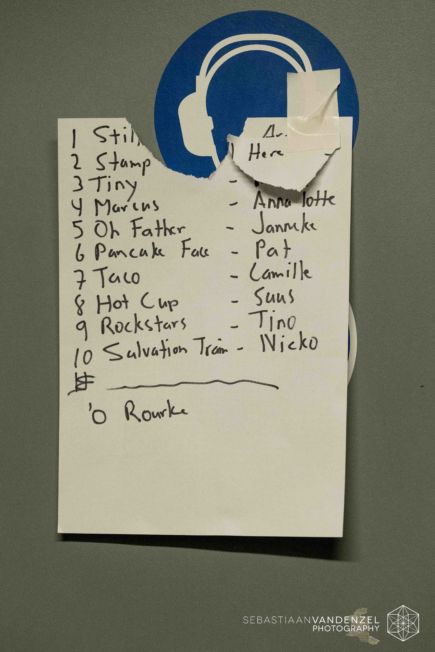 1 Still
Here
2 Stamp
3 Tiny -
4 Marcus - Anna Lotte
5 Oh Father - Janneke
6 Pancake Face - Pat
7 Taco - Camille
8 Hot Cup - Suus
9 Rockstars - Tino
10 Salvation Train - Nicko
'O Rourke
SEBASTIAANVANDENZEL
PHOTOGRAPHY